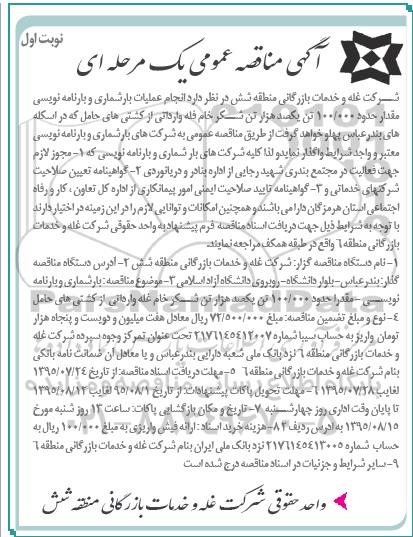 نوبت اول
آگهی مناقصه عمومی یک مرحله ای
شرکت غله و خدمات بازرگانی منطقه شش در نظر دارد انجام عملیات بارشماری و بارنامه نویسی
مقدار حدود ۱۰۰/۰۰۰ تن یکصد هزار تن شکر خام فله وارداتی از کشتی های حامل که در اسکله
های بندرعباس پهلو خواهد گرفت از طریق مناقصه عمومی به شرکت های بارشماری و بارنامه نویسی
معتبر و واجد شرایط واگذار نماید و لذا کلیه شرکت های بار شماری و بارنامه نویسی که ۱- مجوز لازم
جهت فعالیت در مجتمع بندری شهید رجایی از اداره بنادر و دریانوردی ۲- گواهینامه تعیین صلاحیت
شرکتهای خدماتی و ۳- گواهینامه تایید صلاحیت ایمنی امور پیمانکاری از اداره کل تعاون، کار و رفاه
اجتماعی استان هرمزگان دارا می باشند و همچنین امکانات و توانایی لازم را در این زمینه در اختیار دارند
با توجه به شرایط ذیل جهت دریافت اسناد مناقصه فرم پیشنهاد به واحد حقوقی شرکت غله و خدمات
بازرگانی منطقه ۶ واقع در طبقه همکف مراجعه نمایند.
۱- نام دستگاه مناقصه گزار: شرکت غله و خدمات بازرگانی منطقه شش ۲- ادرس دستگاه مناقصه
گذار: بندرعباس- بلوار دانشگاه- روبروی دانشگاه آزاد اسلامی ۳- موضوع مناقصه: بارشماری و بارنامه
نویسی - مقدار حدود ۱۰۰/۰۰۰ تن یکصد هزار تن شکر خام غله وارداتی از کشتی های حامل
۴- نوع و مبلغ تضمین مناقصه: مبلغ ۷۲/۵۰۰/۰۰۰ ریال معادل هفت میلیون و دویست و پنجاه هزار
تومان واریز به حساب سیبا شماره ۲۱۷۶۱۴۵۴۱۲۰۰۷ تحت عنوان تمرکز وجوه سپرده شرکت غله
و خدمات بازرگانی منطقه ۶ نزد بانک ملی شعبه دارایی بندرعباس و یا معادل آن ضمانت نامه بانکی
بنام شرکت غله و خدمات بازرگانی منطقه ۶ ۵- مهلت دریافت اسناد مناقصه: از تاریخ ۱۳۹۵/۰۷/۲۴
لغایت ۱۳۹۵/۰۷/۲۸ ۶- مهلت تحویل پاکات پیشنهادات: از تاریخ ۹۵/۰۸/۱ لغایت ۱۳۹۵/۰۸/۱۲
تا پایان وقت اداری روز چهارشنبه ۷- تاریخ و مکان بازگشایی پاکات: ساعت ۱۳ روز شنبه مورخ
۱۳۹۵/۰۸/۱۵ به آدرس ردیف ۲ ۸- هزینه خرید اسناد: ارائه فیش واریزی به مبلغ ۱۰۰/۰۰۰ ریال به
حساب شماره ۲۱۷۶۱۴۵۴۱۳۰۰۵ نزد بانک ملی ایران بنام شرکت غله و خدمات بازرگانی منطقه ۶
۹- سایر شرایط و جزئیات در اسناد مناقصه درج شده است
واحد حقوقی شرکت غله و خدمات بازرگانی منطقه شش